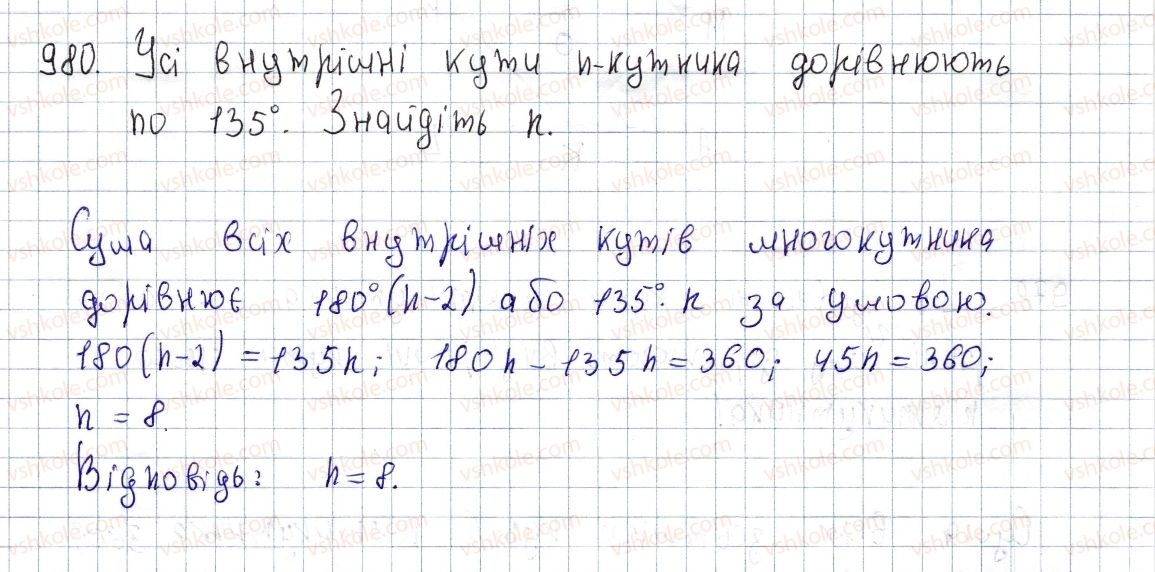 980. Усі внутрішні кути n-кутника дорівнюють
по 135°. Знайдіть n.
Сума всіх внутрішніх кутів многокутника
дорівнює 180°(n-2) або 135°·n за умовою.
180(n-2) = 135n; 180n - 135n = 360; 45n = 360;
n = 8.
Відповідь: n = 8.